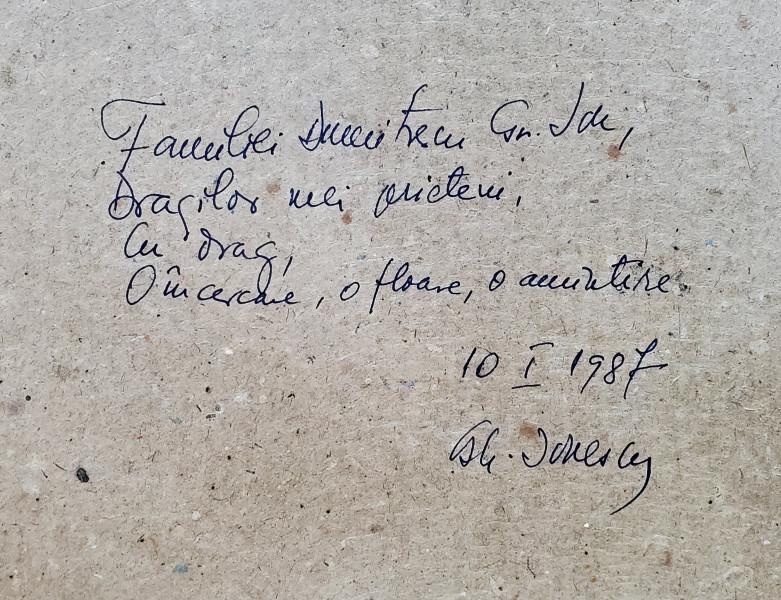 Familiei Dumitrescu Gr. Ion,
Dragilor mei prieteni,
Cu drag,
O încercare, o floare, o amintire
10 I 1987
Gh. Ionescu